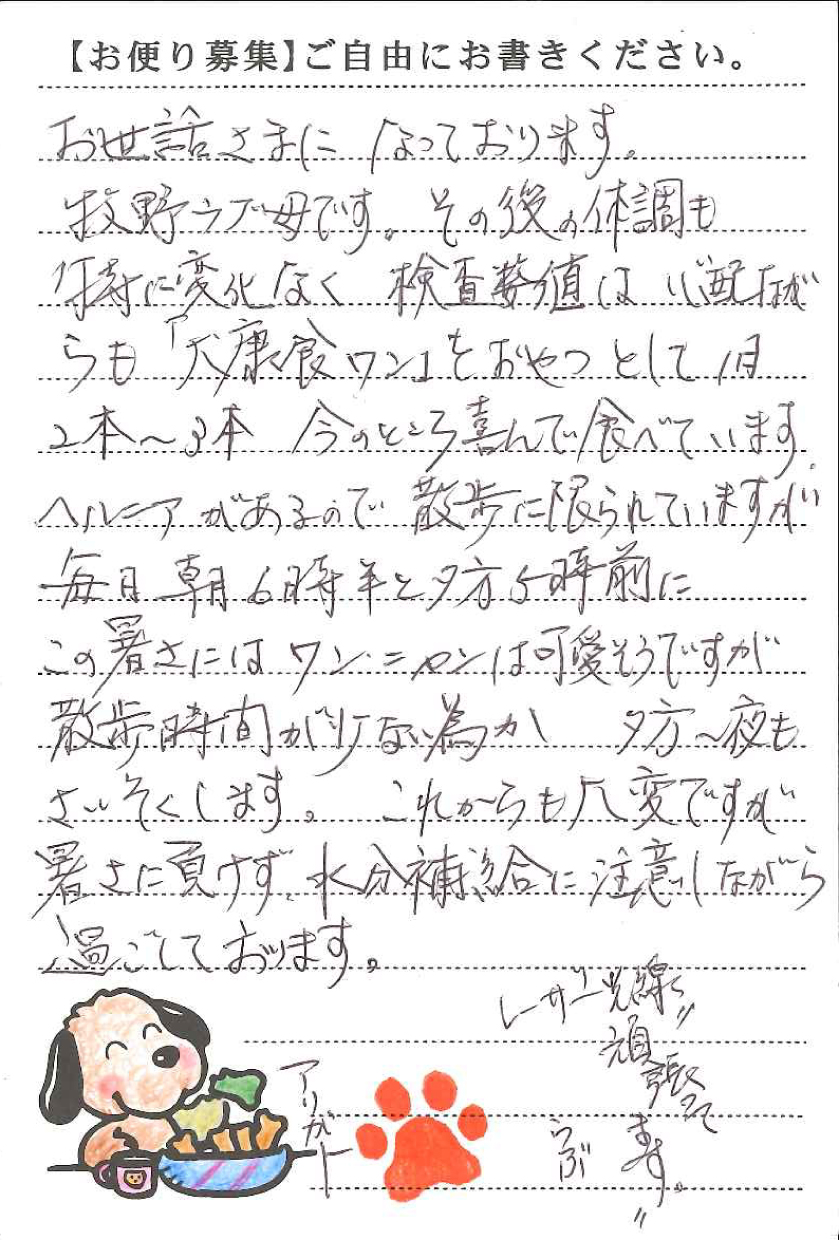 【お便り募集】ご自由にお書きください。
お世話さまに なっております。
牧野ラブ母です。その後の体調も
特に変化なく 検査数値は 心配なが
らも「犬康食ワン」をおやつとして 1日
2本〜3本 今のところ喜んで食べています。
ヘルニアがあるので 散歩に限られていますが
毎日 朝6時半と夕方5時前に
この暑さには ワン・ニャンは可愛そうですが
散歩時間が少ない為か 夕方〜夜も
さいそくします。 これからも大変ですが
暑さに負けず、水分補給に注意しながら
過ごしております。
レーザー光線で
頑張って
ます。
らぶ
アリガトー